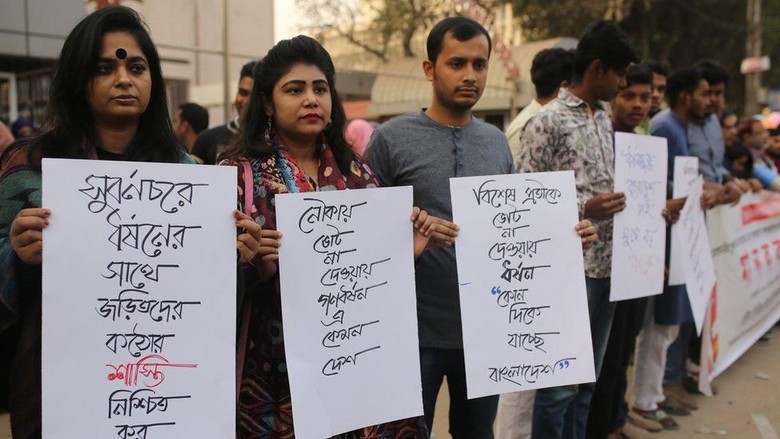 সুবর্ণচরে
ধর্ষনের
সাথে
জড়িতদের
কঠোর
শাস্তি
নিশ্চিত
কর
নৌকায়
ভোট
না
দেওয়ায়
গণধর্ষন
এ
কেমন
দেশ
বিশেষ প্রতীকে
ভোট
না
দেওয়ায়
ধর্ষন
“কোন
দিকে
যাচ্ছে
বাংলাদেশ”